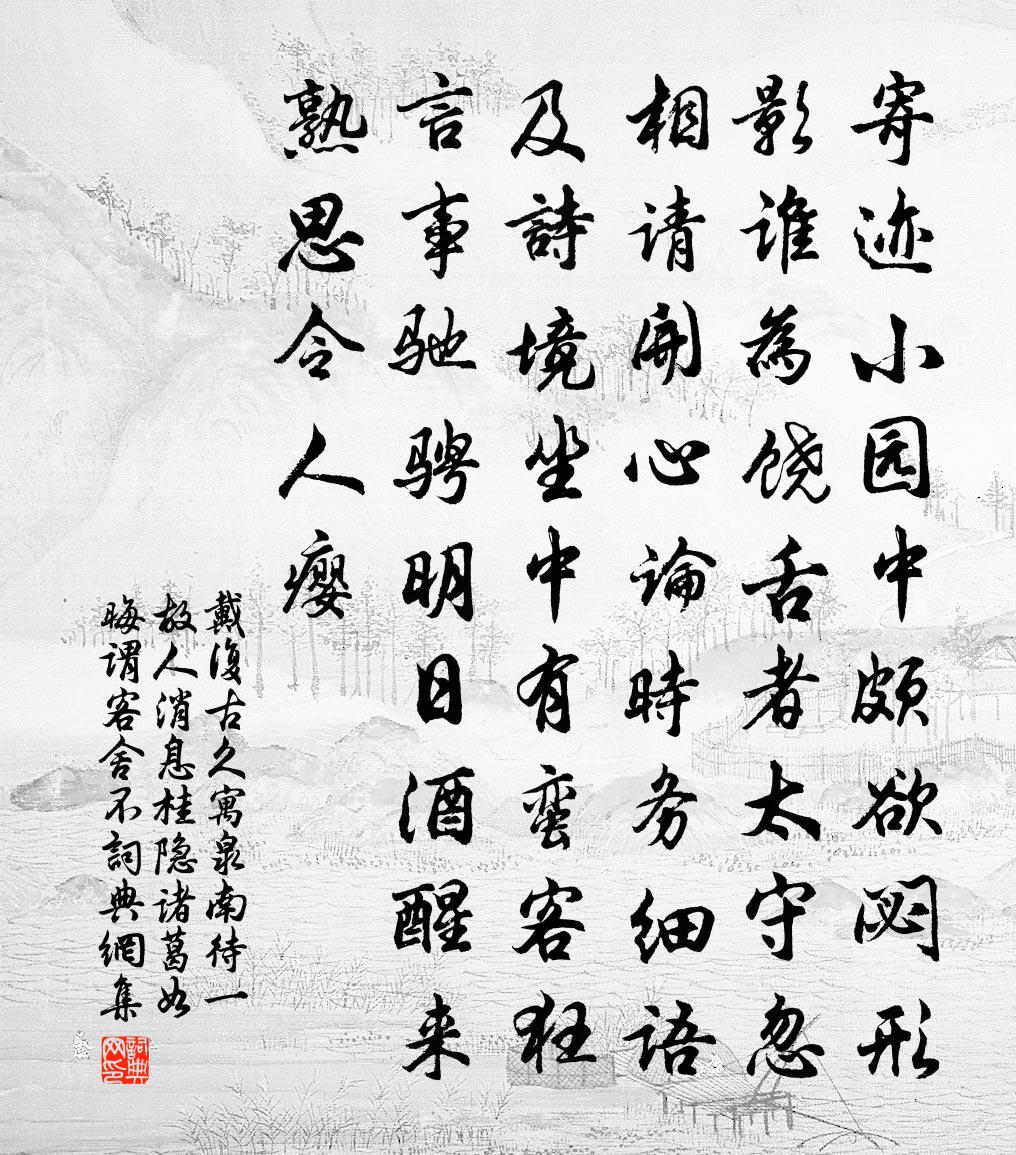 寄迹小园中颇欲閟形
影谁為饶舌者太守忽
相请開心論時务细语
及詩境坐中有蛮客狂
言事驰骋明日酒醒来
熟思令人瘿
戴復古久寓泉南待一
故人消息桂隐诸葛如
晦谓客舍不詞典網集
詞典网印